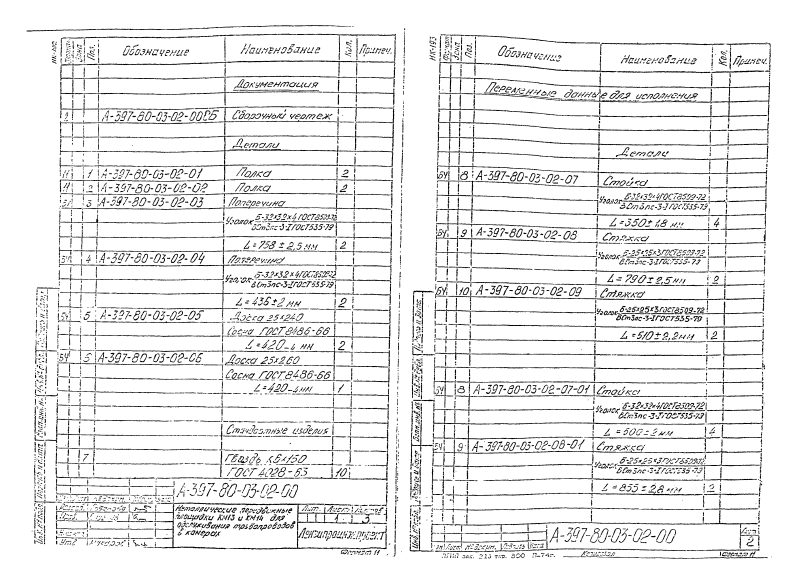 МК-192
Формат
Зона
Поз.
Обозначение
Наименование
Кол.
Примеч.
Документация
А-397-80-03-02-00СБ Сборочный чертеж
Детали
11 1 А-397-80-03-02-01 Полка 2
11 2 А-397-80-03-02-02 Полка 2
БЧ 3 А-397-80-03-02-03 Поперечина
Уголок Б-32×32×4 ГОСТ 8509-72
ВСт3пс-3-I ГОСТ 535-79
L = 758 ± 2,5 мм 2
БЧ 4 А-397-80-03-02-04 Поперечина
Уголок Б-32×32×4 ГОСТ 8509-72
ВСт3пс-3-I ГОСТ 535-79
L = 436 ± 2 мм 2
БЧ 5 А-397-80-03-02-05 Доска 25×240
Сосна ГОСТ 8486-66
L = 420-4 мм 2
БЧ 6 А-397-80-03-02-06 Доска 25×260
Сосна ГОСТ 8486-66
L = 420-4 мм 1
Стандартные изделия
7 Гвоздь
ГОСТ 4028-63 10
А-397-80-03-02-00
Металлические передвижные
площадки КМ13 и КМ14 для
обслуживания трубопроводов
в камерах
Лит. Лист Листов
1 3
Ленгипроинжпроект
Формат 11
МК-193
Формат
Зона
Поз.
Обозначение
Наименование
Кол.
Примеч.
Переменные данные для исполнения
Детали
БЧ 8 А-397-80-03-02-07 Стойка
Уголок Б-32×32×4 ГОСТ 8509-72
ВСт3пс-3-I ГОСТ 535-79
L = 350 ± 1,8 мм 4
БЧ 9 А-397-80-03-02-08 Стяжка
Уголок Б-25×25×3 ГОСТ 8509-72
ВСт3пс-3-I ГОСТ 535-79
L = 790 ± 2,5 мм 2
БЧ 10 А-397-80-03-02-09 Стяжка
Уголок Б-25×25×3 ГОСТ 8509-72
ВСт3пс-3-I ГОСТ 535-79
L = 510 ± 2,2 мм 2
БЧ 8 А-397-80-03-02-07-01 Стойка
Уголок Б-32×32×4 ГОСТ 8509-72
ВСт3пс-3-I ГОСТ 535-79
L = 600 ± 2 мм 4
БЧ 9 А-397-80-03-02-08-01 Стяжка
Уголок Б-25×25×3 ГОСТ 8509-72
ВСт3пс-3-I ГОСТ 535-79
L = 855 ± 2,8 мм 2
А-397-80-03-02-00
Лист
2
Изм. Лист № докум. Подпись Дата
Копировал
Формат 11